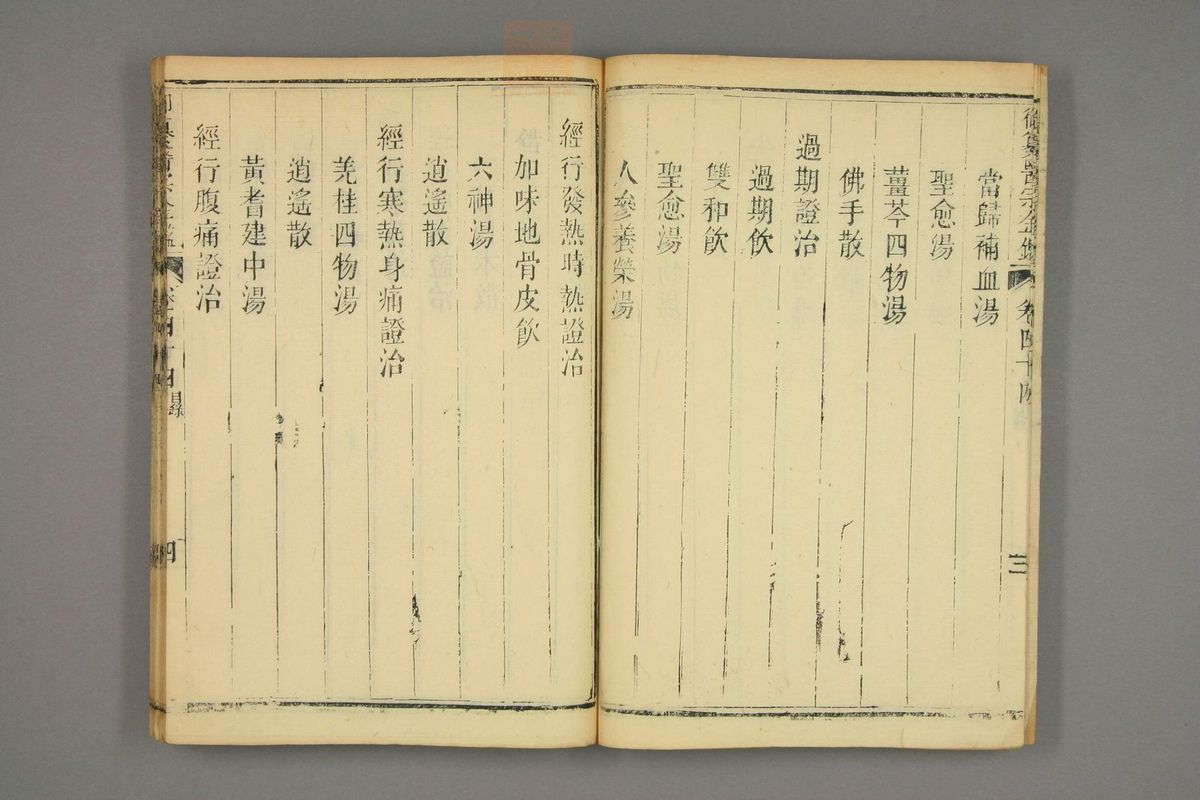 御纂醫宗金鑑 卷四十四 三
當歸補血湯
聖愈湯
薑芩四物湯
佛手散
過期證治
過期飮
雙和飮
聖愈湯
人參養榮湯
經行發熱時熱證治
加味地骨皮飮
六神湯
逍遙散
經行寒熱身痛證治
羌桂四物湯
逍遙散
黃耆建中湯
經行腹痛證治
卷四十四 目錄 四